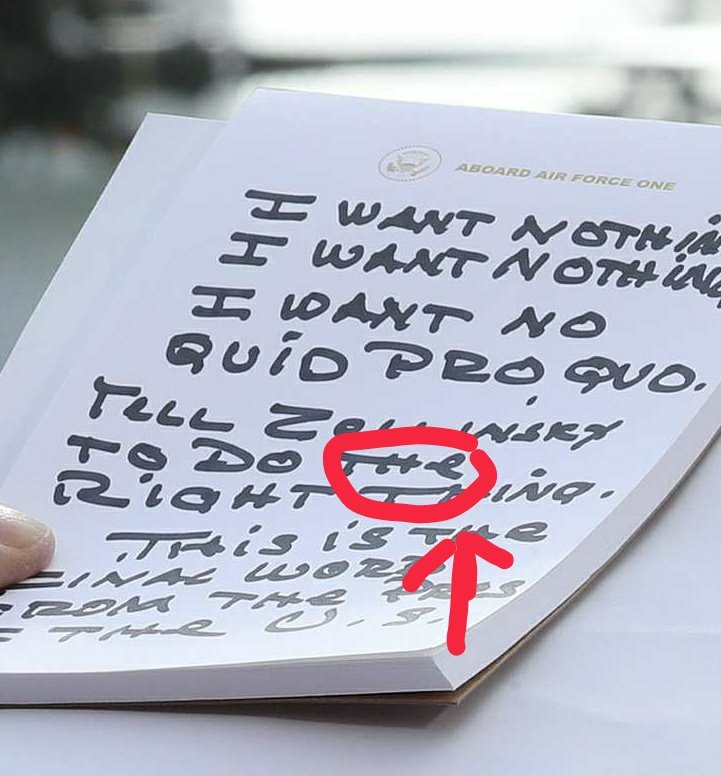 ABOARD AIR FORCE ONE
I WANT NOTHIN
I WANT NOTHING
I WANT NO
QUID PRO QUO.
TELL ZELLINSKY
TO DO THE
RIGHT THING.
THIS IS THE
FINAL WORD
FROM THE PRES
OF THE U.S.